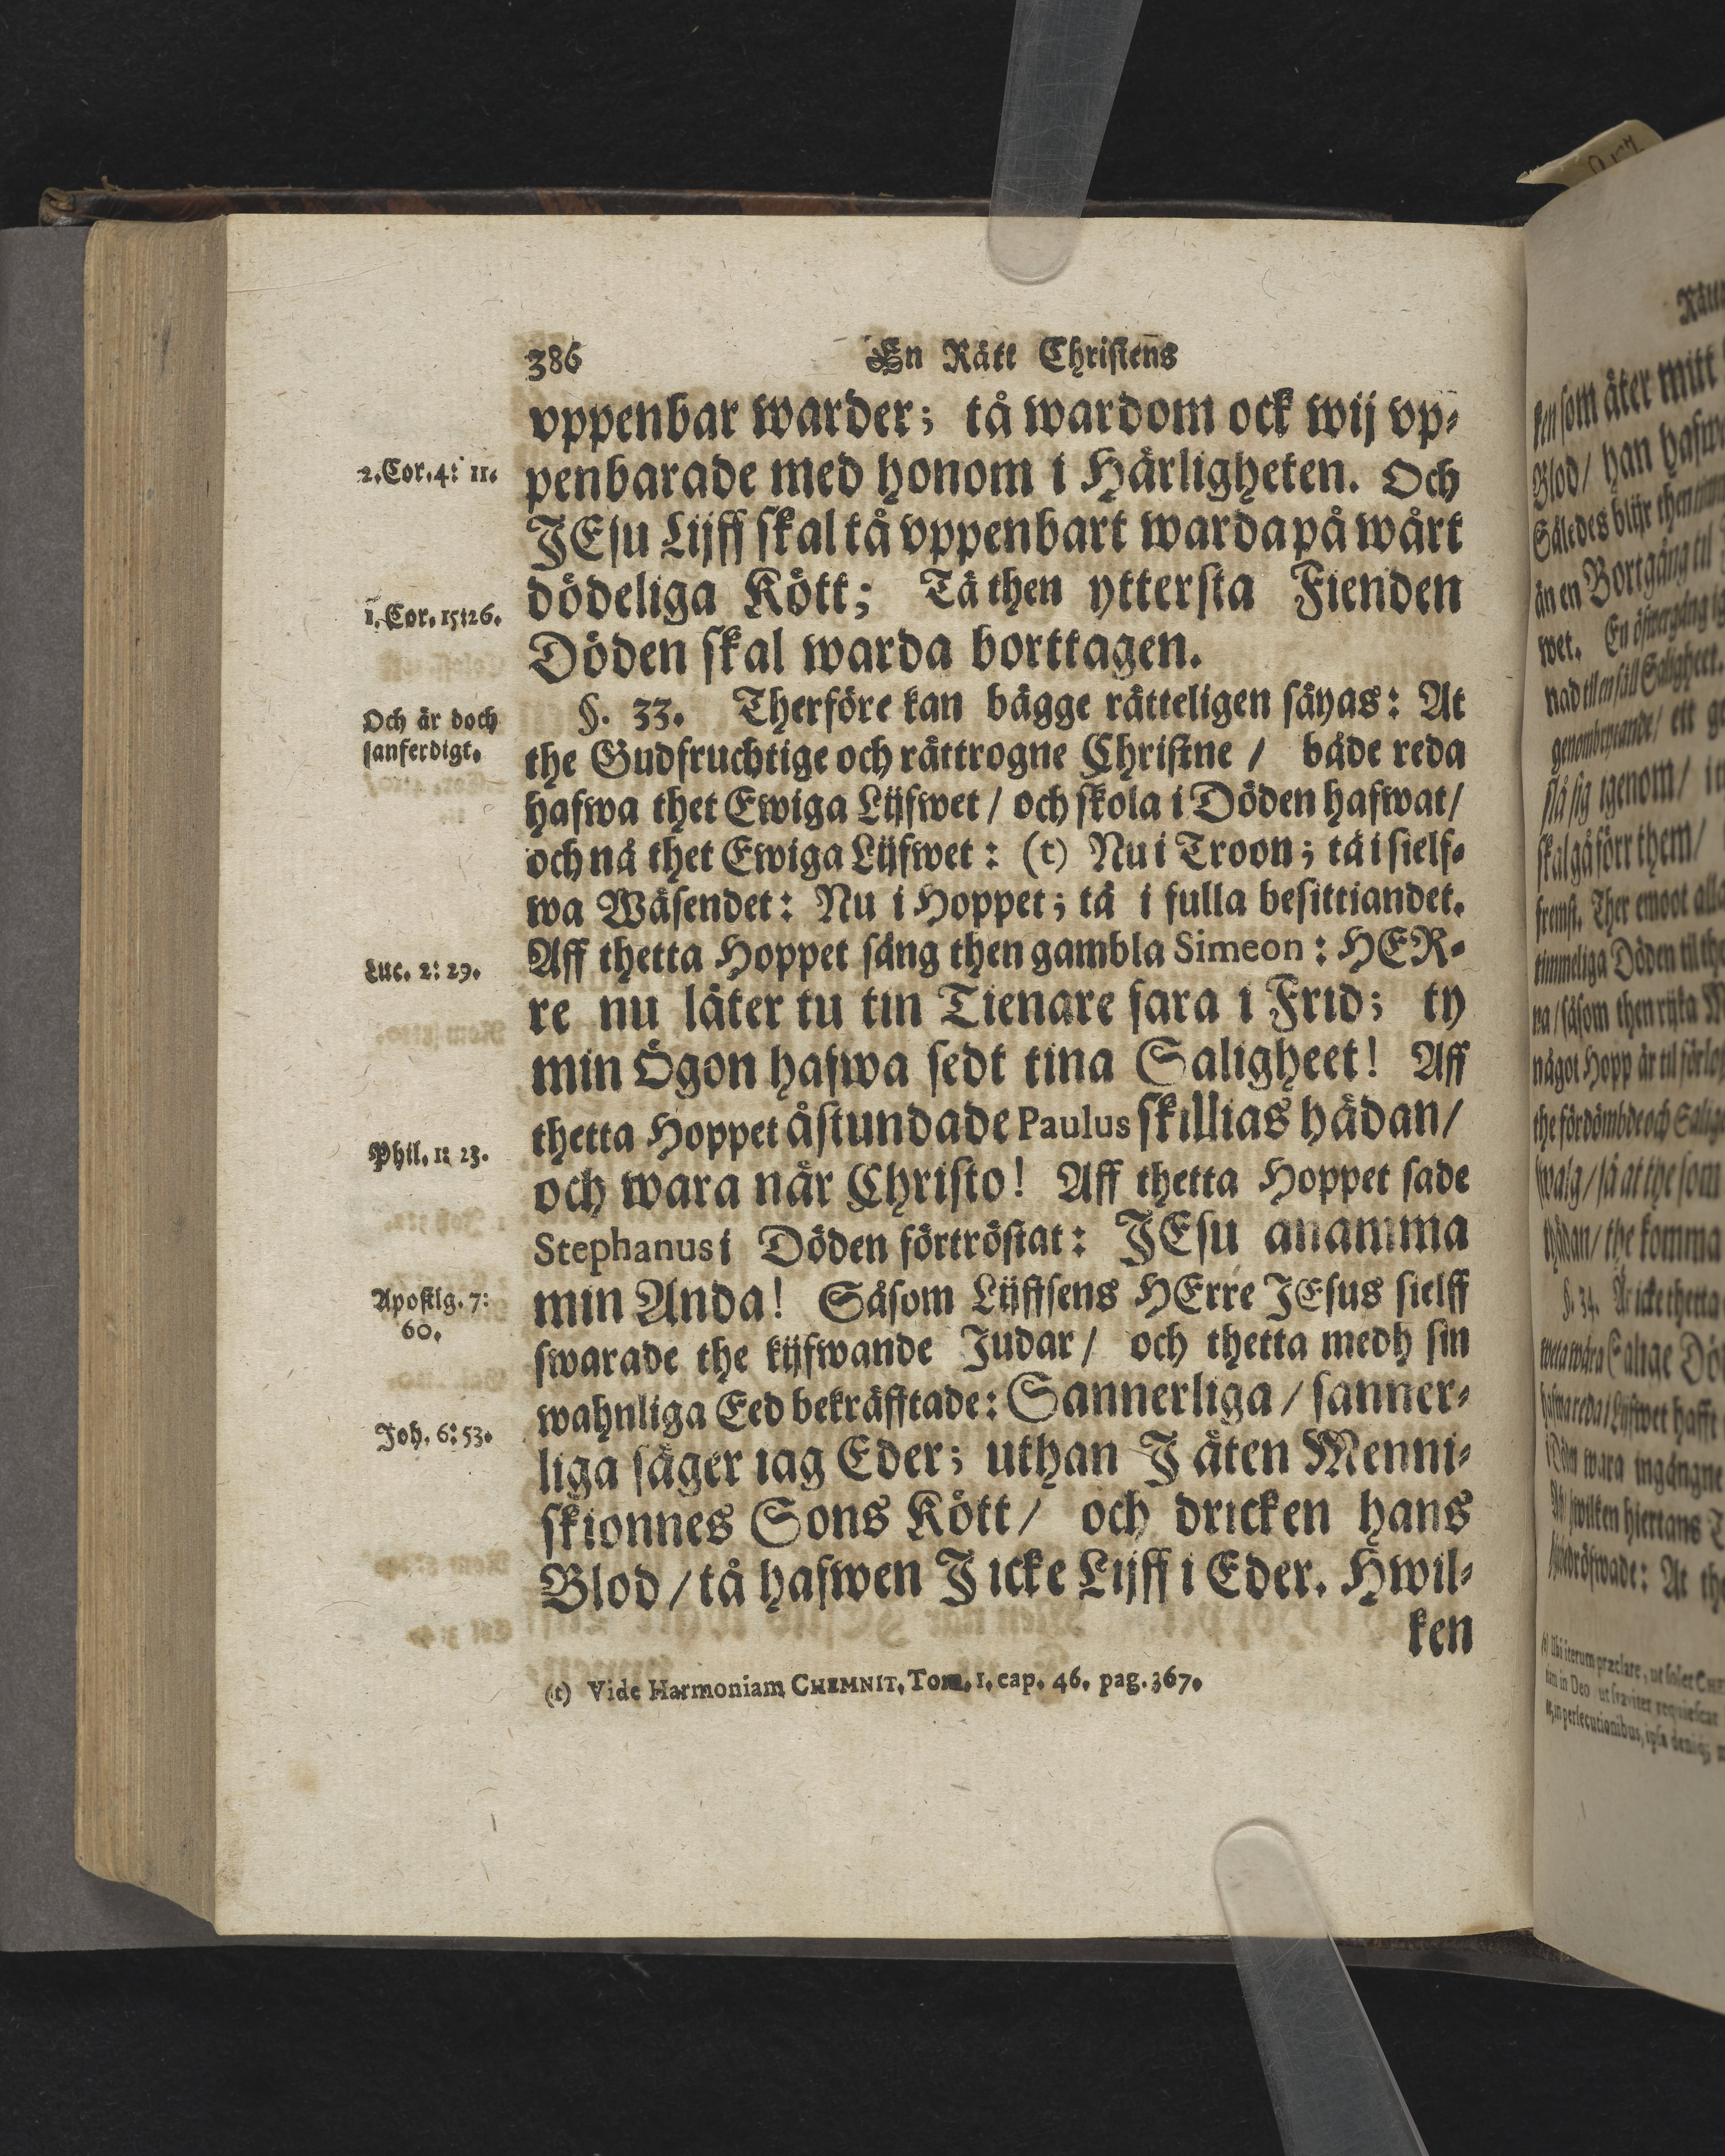 386 En Rätt Christens
vppenbar warder; tå wardom ock wij vp-
2. Cor. 4: 11.
penbarade med honom i Härligheten. Och
JEsu Lijff skal tå vppenbart warda på wårt
dödeliga Kött; Tå then yttersta Fienden
1. Cor. 15:26.
Döden skal warda borttagen.
§. 33. Therföre kan bägge rätteligen säyas: At
Och är doch
sanferdigt.
the Gudfruchtige och rättrogne Christne / både reda
hafwa thet Ewiga Lijfwet / och skola i Döden hafwat /
och nå thet Ewiga Lijfwet: (t) Nu i Troon; tå i sielf-
wa Wäsendet: Nu i Hoppet; tå i fulla besittiandet.
Aff thetta Hoppet sång then gambla Simeon: HER-
Luc. 2: 29.
re nu låter tu tin Tienare fara i Frid; ty
min Ögon hafwa sedt tina Saligheet! Aff
thetta Hoppet åstundade Paulus skillias hädan /
Phil. 1: 23.
och wara när Christo! Aff thetta Hoppet sade
Stephanus i Döden förtröstat: JEsu anamma
min Anda! Såsom Lijffsens HErre JEsus sielff
Apostlg. 7:
60.
swarade the kijfwande Judar / och thetta medh sin
wahnliga Eed bekräfftade: Sannerliga / sanner-
Joh. 6: 53.
liga säger iag Eder; uthan J äten Menni-
skionnes Sons Kött / och dricken hans
Blod / tå hafwen J icke Lijff i Eder. Hwil-
ken
(t) Vide Harmoniam CHEMNIT. Tom. 1. cap. 46. pag. 367.